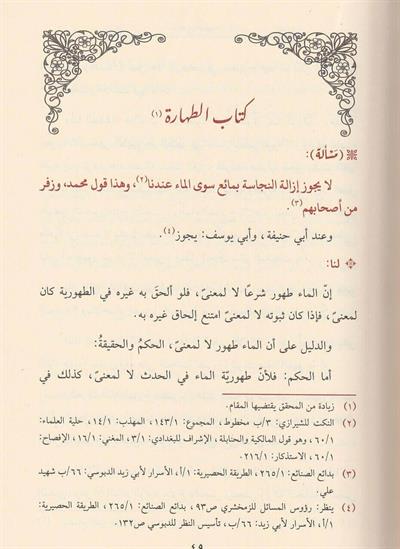 كتاب الطهارة (١)
(مسألة):
لا يجوز إزالة النجاسة بمائع سوى الماء عندنا(٢)، وهذا قول محمد، وزفر
من أصحابهم(٣).
وعند أبي حنيفة، وأبي يوسف: يجوز(٤).
لنا:
إنّ الماء طهور شرعًا لا لمعنىً، فلو ألحق به غيره في الطهورية كان
لمعنىً، فإذا كان ثبوته لا لمعنىً امتنع إلحاق غيره به.
والدليل على أن الماء طهور لا لمعنىً، الحكمُ والحقيقةُ:
أما الحكم: فلأنّ طهوريّة الماء في الحدث لا لمعنىً، كذلك في
(١) زيادة من المحقق يقتضيها المقام.
(٢) النكت للشيرازي: ٣/ب مخطوط، المجموع: ١٤٣/١، المهذب: ١٤/١، حلية العلماء:
٦٠/١، وهو قول المالكية والحنابلة، الإشراف للبغدادي: ٣/١، المغني: ١٦/١، الإفصاح:
٦٠/١، الاستذكار: ٢١٦/١.
(٣) بدائع الصنائع: ٢٦٥/١، الطريقة الحصيرية: ١/أ، الأسرار لأبي زيد الدبوسي: ٦٦/ب شهيد
علي.
(٤) ينظر: رؤوس المسائل للزمخشري ص٩٣، بدائع الصنائع: ٢٦٥/١، الطريقة الحصيرية:
١/أ، الأسرار لأبي زيد: ٦٦/ب، تأسيس النظر للدبوسي ص١٣٢.
٤٩